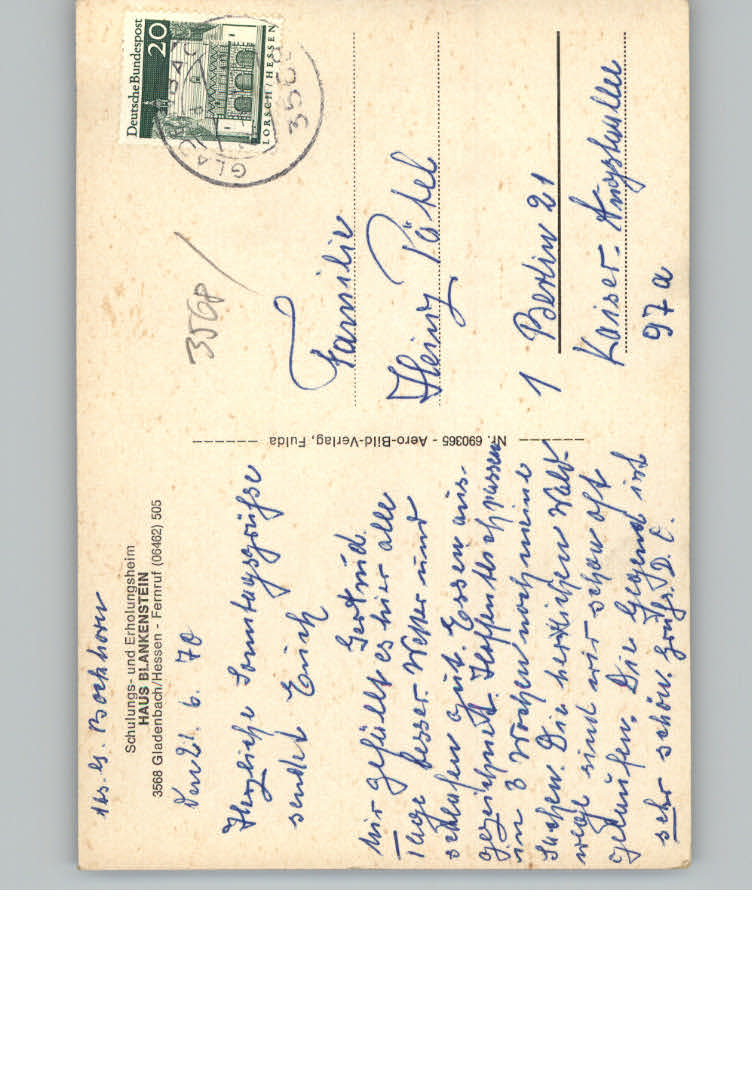 Abs. G. Bockhorn
Schulungs- und Erholungsheim
HAUS BLANKENSTEIN
3568 Gladenbach/Hessen - Fernruf (06462) 505
Den 21. 6. 70
Herzliche Sonntagsgrüße
sendet Euch
Gertrud.
Mir gefällt es hier alle
Tage besser. Wetter und
schlafen gut. Essen aus-
gezeichnet. Hoffentlich passen
in 3 Wochen noch meine
Sachen. Die herrlichen Wald-
wege sind wir schon oft
gelaufen. Die Gegend ist
sehr schön. Grüße D. O.
Nr. 690365 - Aero-Bild-Verlag, Fulda
Deutsche Bundespost
20
LORSCH/HESSEN
3568
3568
Familie
Heinz Pätel
1 Berlin 21
Kaiser-Augstallee
97a